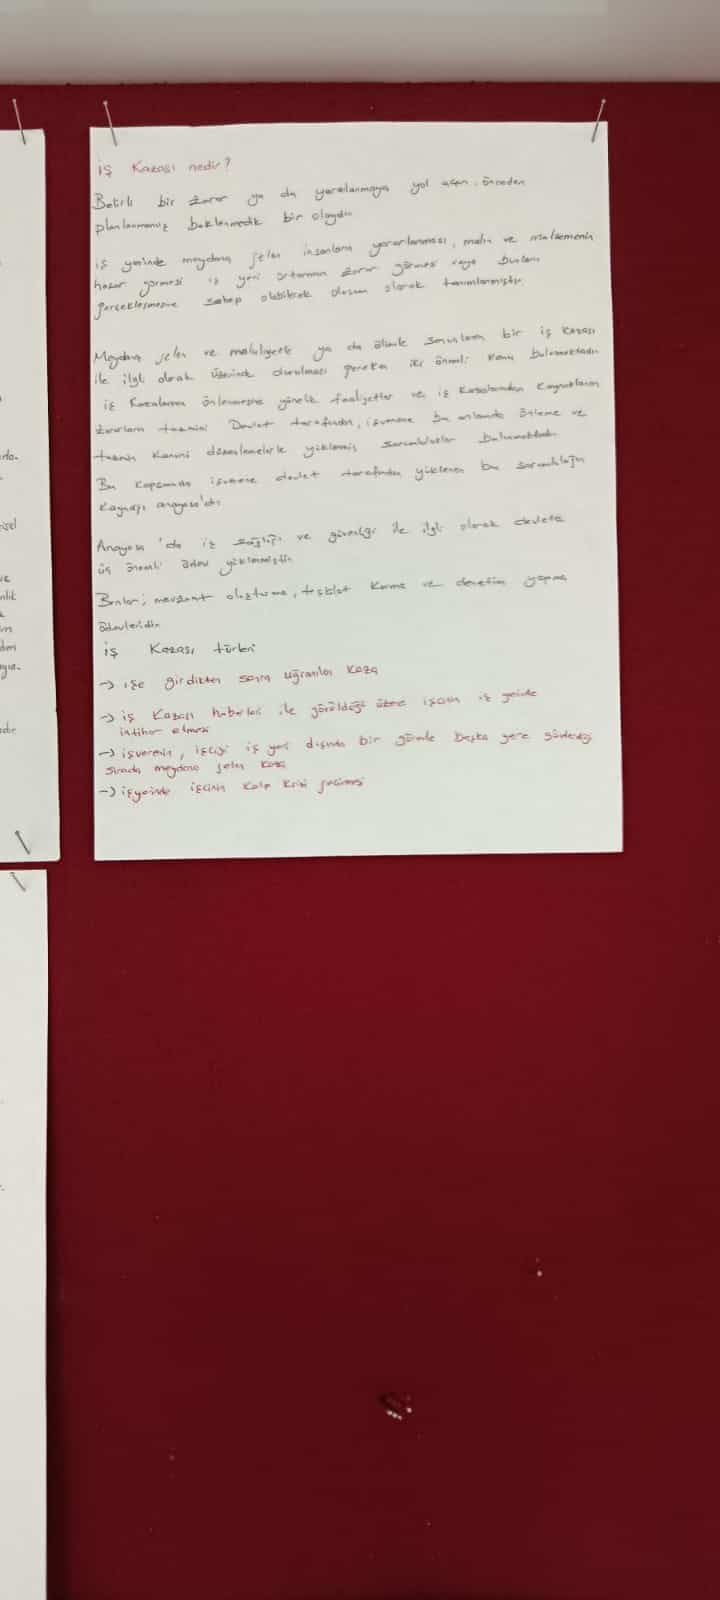 iş Kazası nedir?
Belirli bir zarar ya da yaralanmaya yol açan, önceden
planlanmamış beklenmedik bir olaydır
iş yerinde meydana gelen insanların yararlanması, malın ve malzemenin
hasar görmesi iş yeri ortamının zarar görmesi veya bunların
gerçekleşmesine sebep olabilecek durum olarak tanımlanmıştır.
Meydana gelen ve maluliyetle ya da ölümle sonuçlanan bir iş kazası
ile ilgili olarak üzerinde durulması gereken iki önemli konu bulunmaktadır
iş kazalarının önlenmesine yönelik faaliyetler ve iş kazalarından kaynaklanan
zararların tazmini Devlet tarafından, işverene bu anlamda önleme ve
tazmin kanuni düzenlemelerle yüklenmiş sorumluluklar bulunmaktadır
Bu kapsamda işverene devlet tarafından yüklenen bu sorumluluğun
kaynağı anayasa'dır
Anayasa 'da iş sağlığı ve güvenliği ile ilgili olarak devlete
üç önemli ödev yüklenmiştir
Bunlar; mevzuat oluşturma, teşkilat kurma ve denetim yapma
ödevleridir
iş Kazası türleri
→ işe girdikten sonra uğranılan kaza
→ iş kazası haberleri ile görüldüğü üzere işçinin iş yerinde
intihar etmesi
→ işverenin, işçiyi iş yeri dışında bir görevle başka yere gönderdiği
sırada meydana gelen kaza
→ işyerinde işçinin kalp krizi geçirmesi